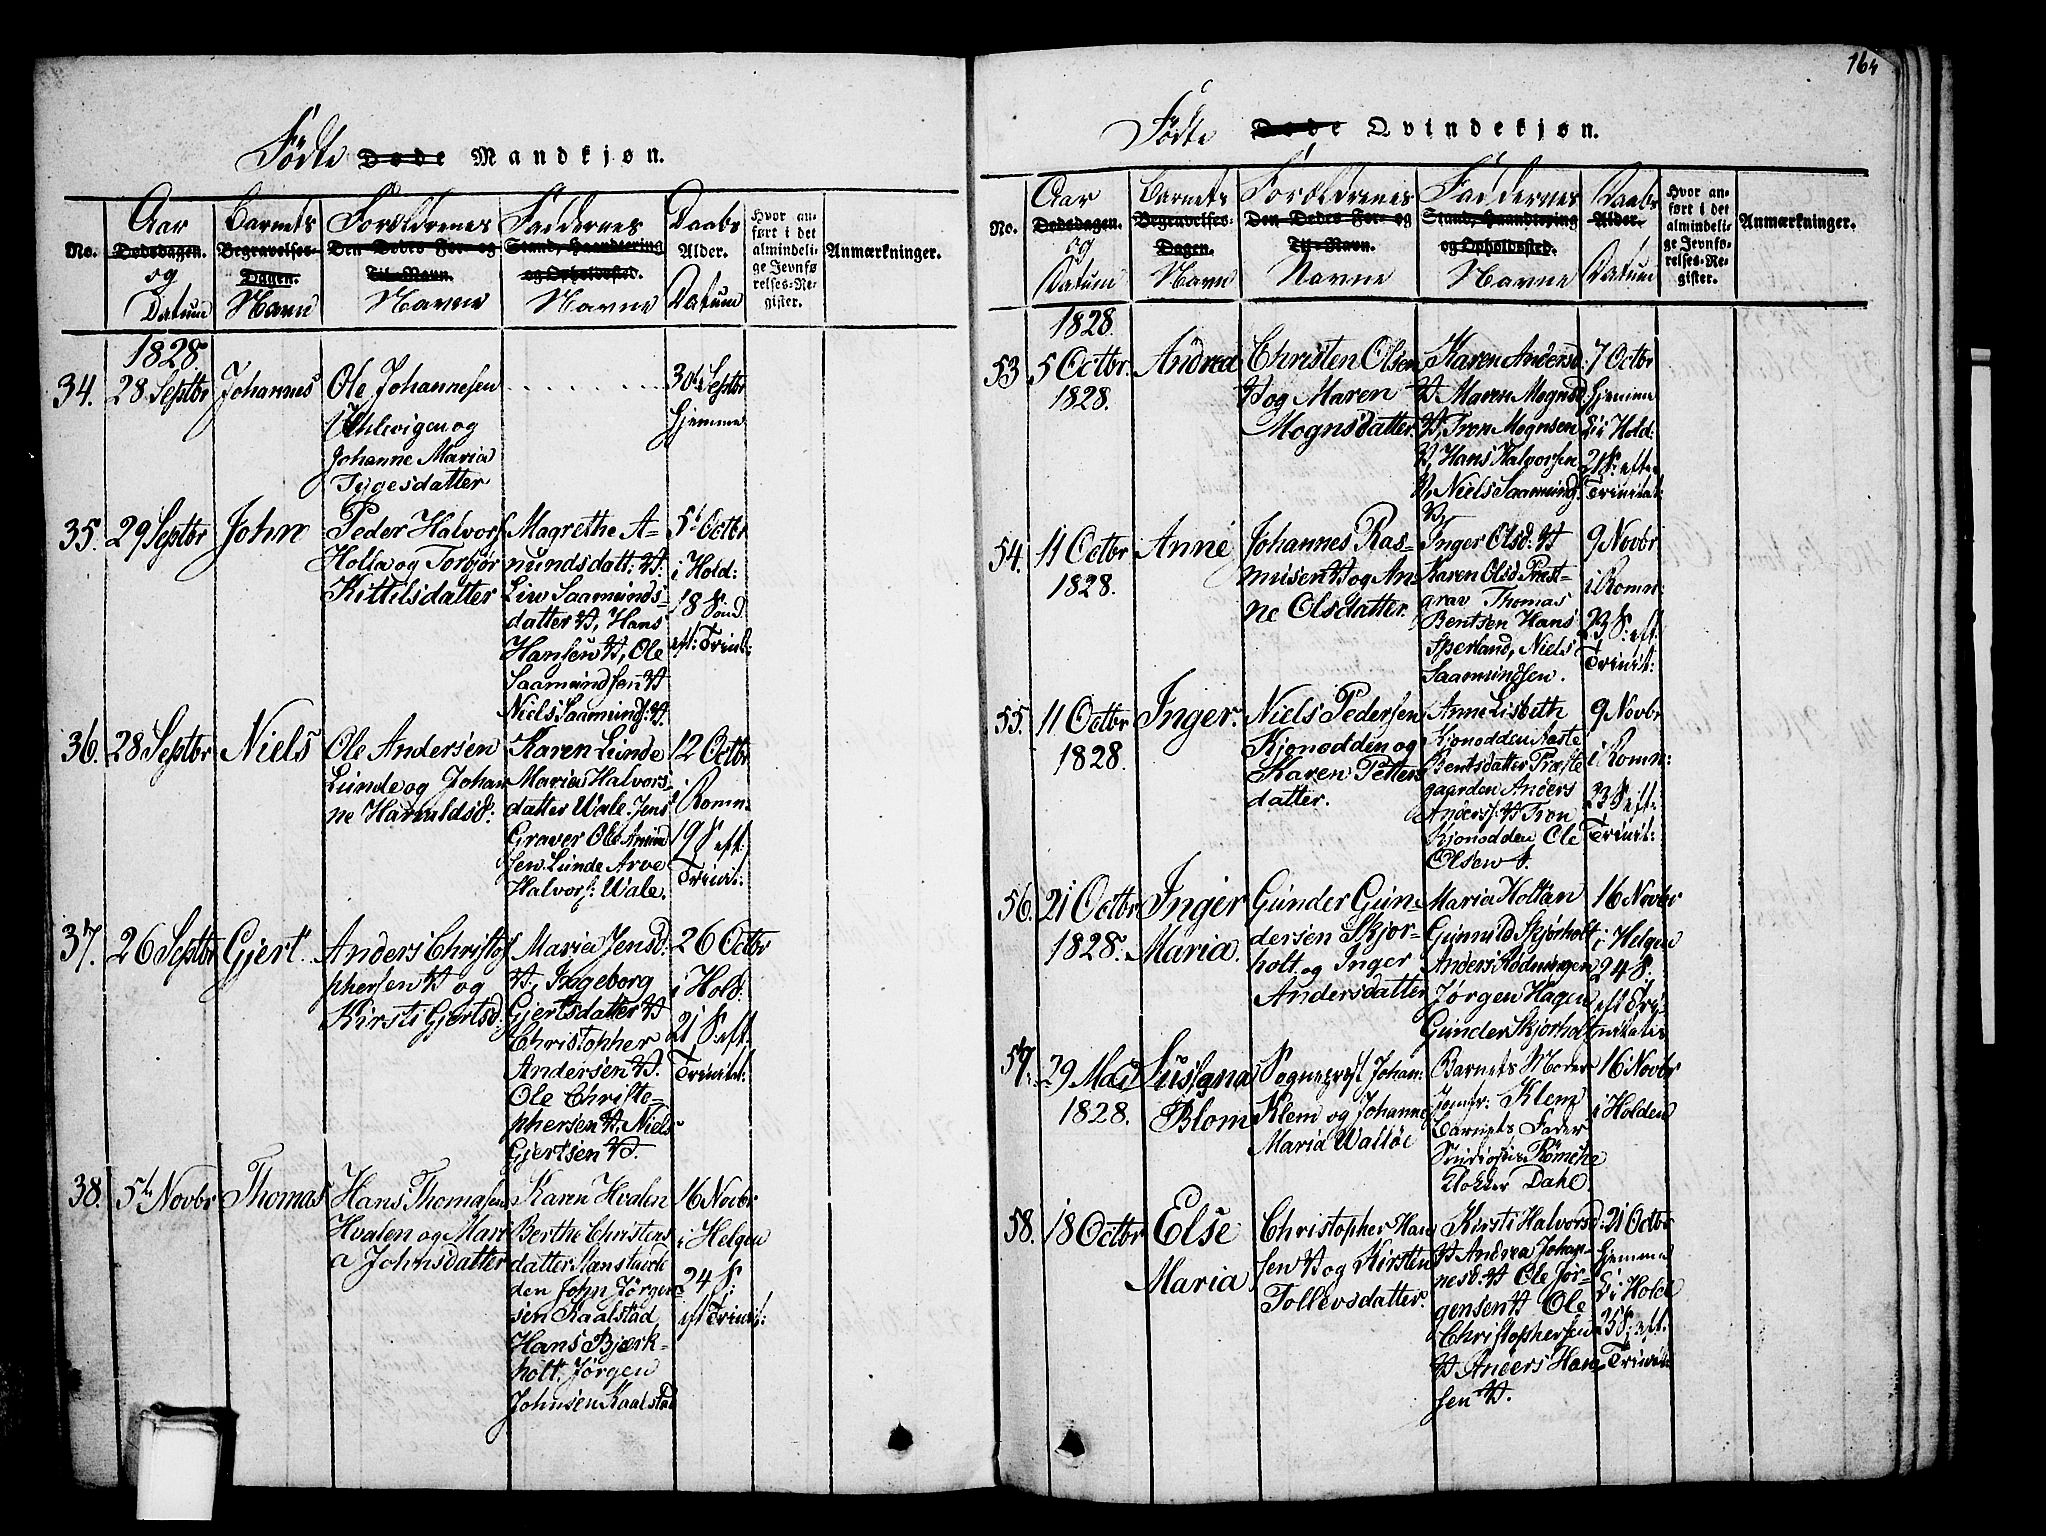 Fødte Døde Mandkjøn.
No.
Aar
Dødsdagen.
og
Datum
Barnets
Begravelses-
Dagen.
Navn
Forældrenes
Den Dødes For- og
Til-Navn.
Navne
Faddernes
Stand, Haandtering
og Opholdssted.
Navne
Daabs
Alder.
Datum
Hvor an-
ført i det
almindeli-
ge Jevnfø
relses-Re-
gister.
Anmærkninger.
1828.
34.
28 Septbr
Johannes
Ole Johannesen
Uhlevigen og
Johanne Maria
Tygesdatter
30te Septbr
hjemme
35.
29 Septbr
John
Peder Halvors
Holla og Torbjør
Kittilsdatter
Magrethe A-
mundsdatt:
Liv Saamunds-
datter, Hans
Hansen, Ole
Saamundsen
Niels Saamunds:
5t Octbr
i Hold:
18 Sønd
eft: Trinit:
36.
28 Septbr
Niels
Ole Andersen
Lunde og Johan
ne Haraldsd:
Karen Lunde
Maria Halvors-
datter Wale. Jens
Graver Ole Amund
sen Lunde Arve
Halvors: Wale.
12 Octbr
i Romn:
19 S. eft.
Trinit:
37.
26 Septbr
Gjert.
Anders Christof
phersen og
Kirsti Gjertsd:
Maria Jensd:
Ingeborg
Gjertsdatter
Christopher
Andersen
Ole Christo-
phersen, Niels
Gjertsen
26 Octbr
i Hold:
21 S: eft.
Trinitat:
38.
5te Novbr
Thomas
Hans Thomasen
Hvalen og Mari
a Johnsdatter
Karen Hvalen
Berthe Christens
datter Stenstad
den John Jørgen
sen Kaalstad
Hans Bjerk-
holt. Jørgen
Johnsen Kaalstad
16 Novbr
i Helgen
24 S:
eft Trinit:
164
Fødte Døde Qvindekjøn.
No.
Aar
Dødsdagen.
og
Datum
Barnets
Begravelses-
Dagen.
Navn
Forældrenes
Den Dødes For- og
Til-Navn.
Navne
Faddernes
Stand, Haandtering
og Opholdssted.
Navne
Daabs
Alder.
Datum
Hvor an-
ført i det
almindeli-
ge Jevnfø-
relses-Re-
gister.
Anmærkninger.
1828.
53
5 Octbr.
1828.
Andrea
Christen Olsen
og Maren
Mognsdatter.
Karen Andersd:
Maren Mognsd
Tron Mognsen
Hans Halvorsen
Niels Saamunds:
7 Octbr
hjemme
i Hold:
21 S: efter
Trinitat:
54.
11 Octbr
1828.
Anne
Johannes Ras-
musen og An
ne Olsdatter.
Inger Olsd:
Karen Olsd Præst-
grav Thomas
Bentsen Hans
Sperland, Niels
Saamundsen.
9 Novbr
i Romn:
23 S: eft.
Trinit:
55.
11 Octbr
1828.
Inger.
Niels Pedersen
Kjonodden og
Karen Petters
datter.
Anne Lisbeth
Kjonodden Aaste
Bentsdatter Præste
gaarden Anders
Anders: Tron
Kjonodden Ole
Olsen
9 Novbr
i Romn:
23 S eft:
Trinit:
56.
21 Octbr
1828.
Inger
Maria.
Gunder Gun-
dersen Skjor-
holt og Inger
Andersdatter
Maria Holtan
Gunnild Skjørholt
Anders Rødningen
Jørgen Hagen
Gunder Skjorholt
16 Novbr
i Helgen
24 S.
eft Tri-
nitatis
57.
29 Mai
1828.
Susana
Blom
Sogneprest Johan
Klem og Johanne
Maria Walløe
Barnets Moder
Jomfr: Klem
Barnets Fader
Klokker Dahl.
16 Novbr
i Holden
58.
18 Octbr
Else
Maria
Christopher Han
sen og Kirsten
Tollevsdatter.
Kirsti Halvorsd:
Andrea Johan-
nesd: Ole Jør-
gensen Ole
Christophersen
Anders Han
sen
21 Octbr
hjemme
i Hold
25 S. eft.
Trinita